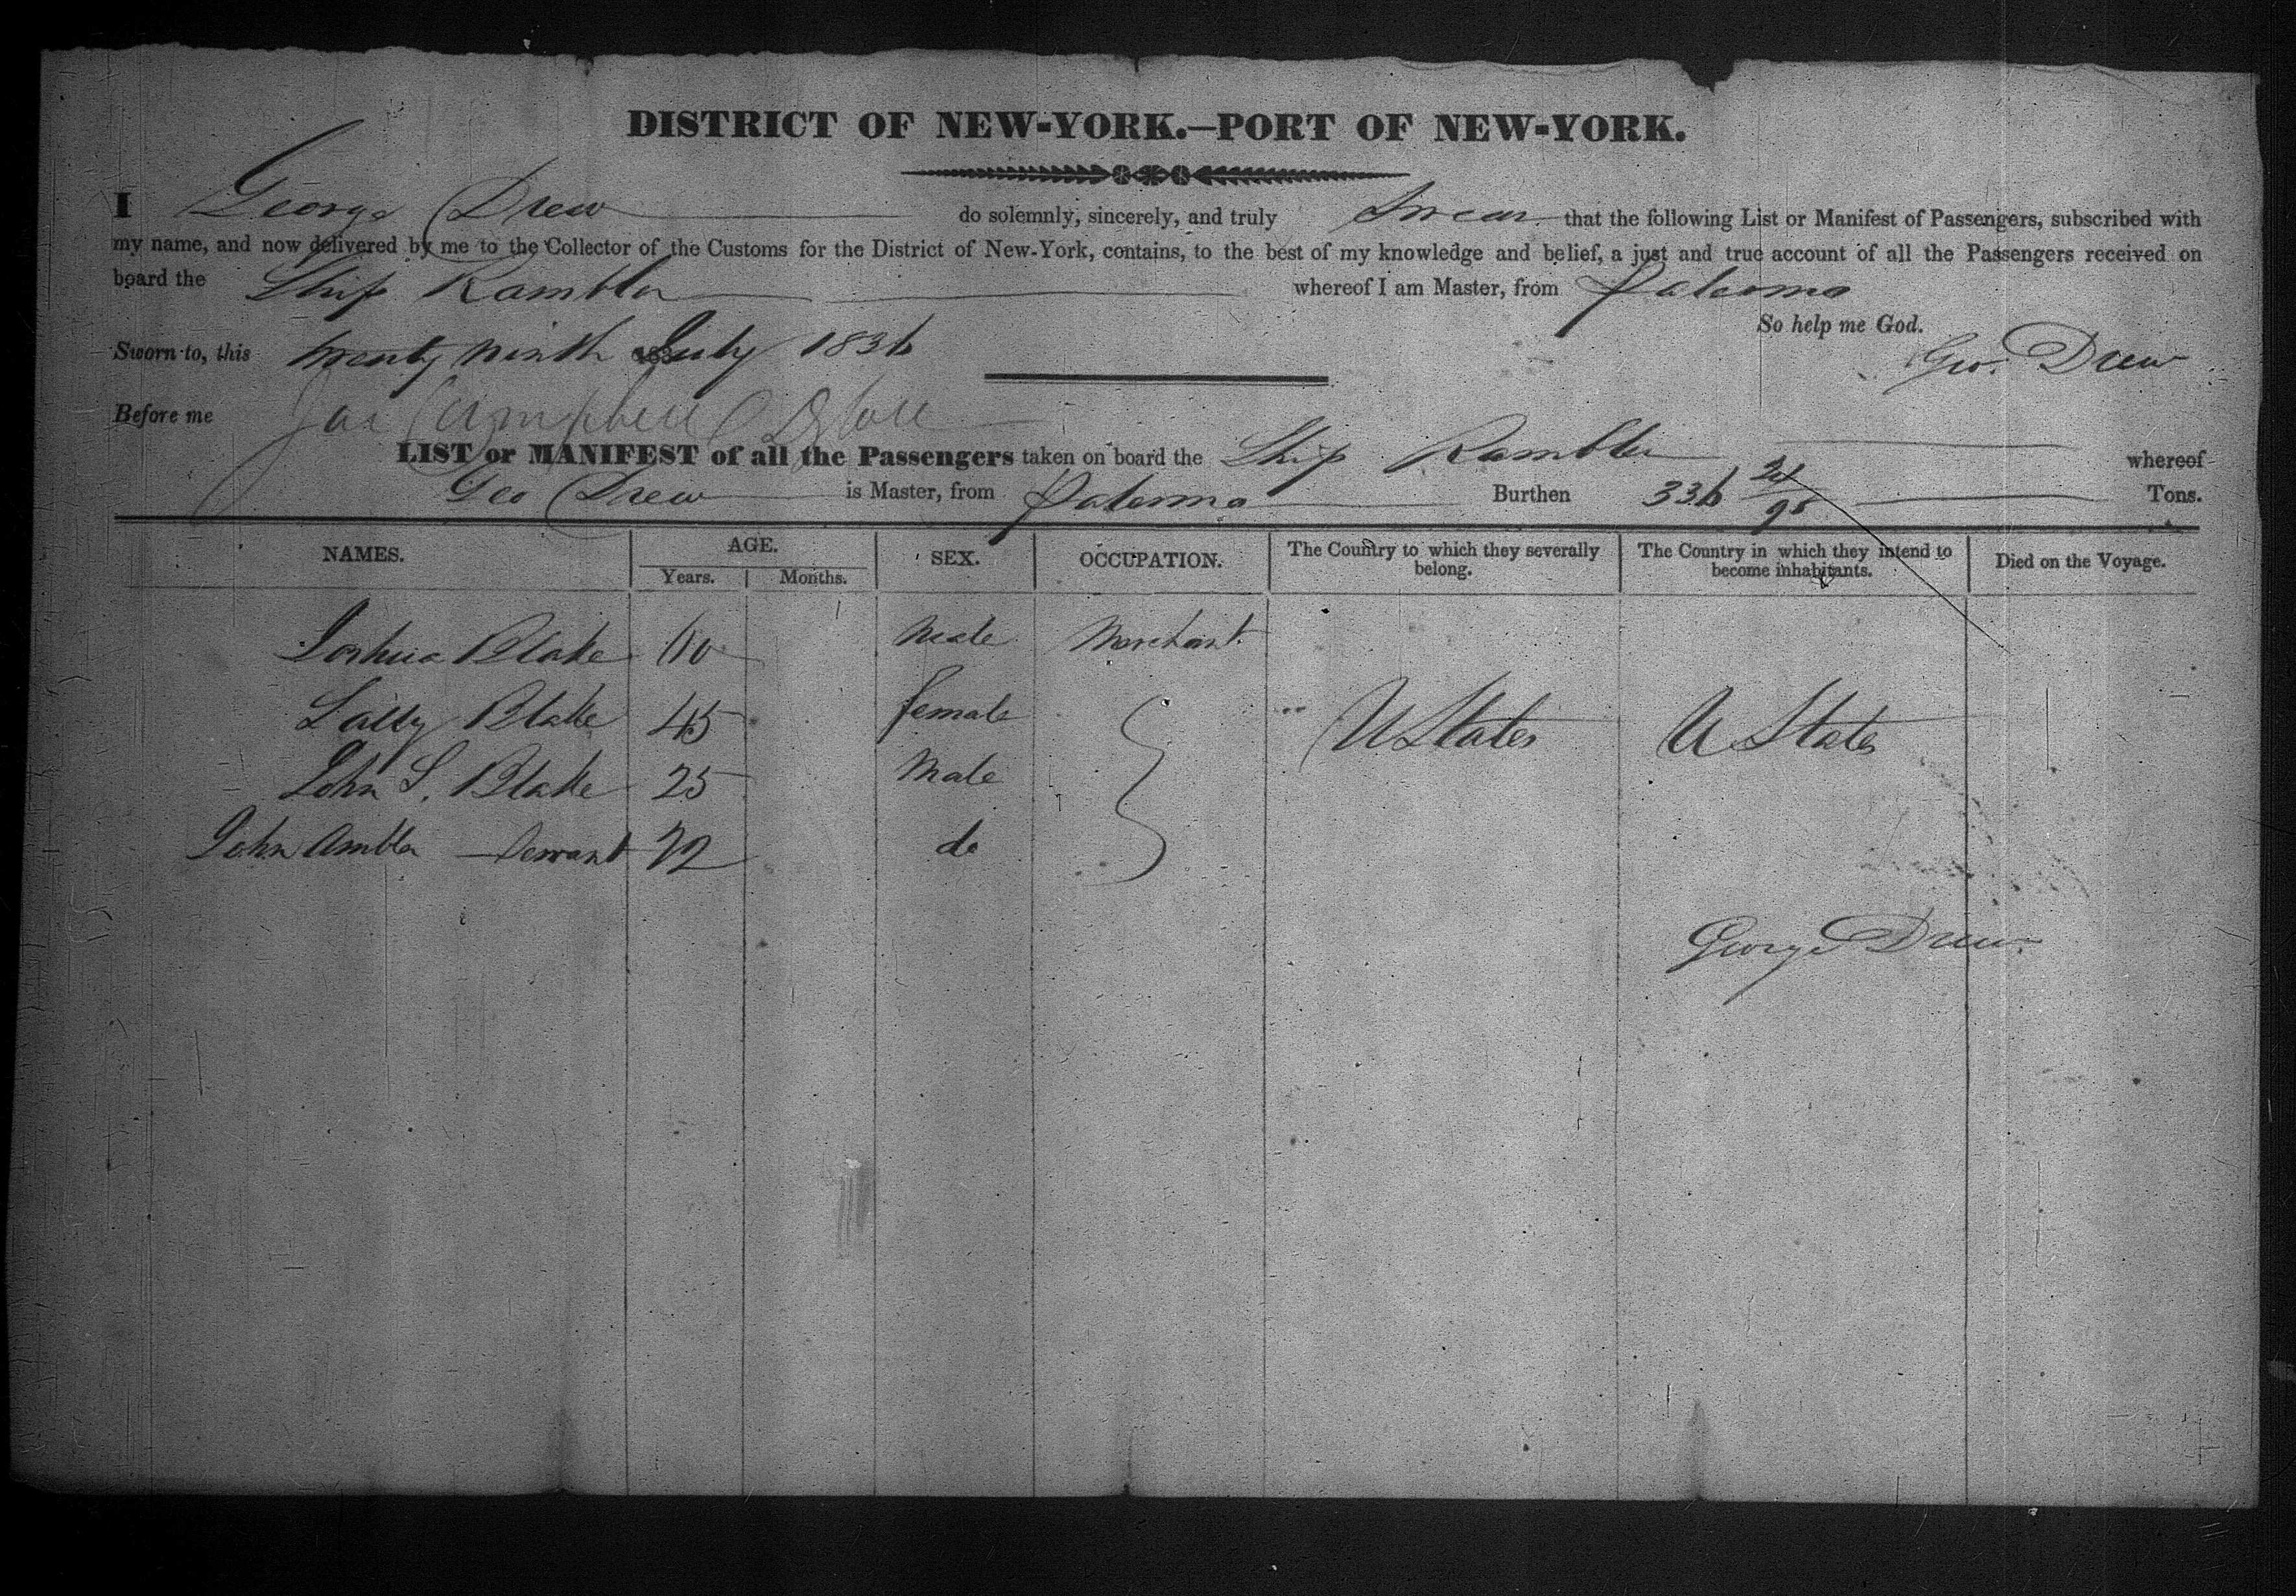 DISTRICT OF NEW-YORK.—PORT OF NEW-YORK.
I George Drew do solemnly, sincerely, and truly Swear that the following List or Manifest of Passengers, subscribed with
my name, and now delivered by me to the Collector of the Customs for the District of New-York, contains, to the best of my knowledge and belief, a just and true account of all the Passengers received on
board the Ship Rambler whereof I am Master, from Palermo
So help me God.
Sworn to, this twenty ninth July 1836 Geo. Drew
Before me Jas Campbell
LIST or MANIFEST of all the Passengers taken on board the Ship Rambler whereof
Geo Drew is Master, from Palermo Burthen 336 24/95 Tons.
NAMES. AGE. Years. Months. SEX. OCCUPATION. The Country to which they severally belong. The Country in which they intend to become inhabitants. Died on the Voyage.
Joshua Blake 60 Male Merchant
Sally Blake 45 female U States U States
John S. Blake 25 Male
John Ambler Servant 22 do
George Drew